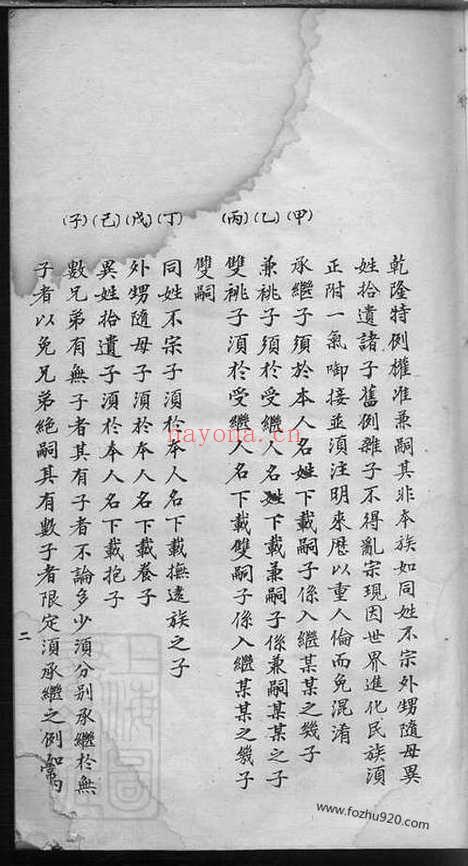 乾隆特例權准兼嗣其非本族如同姓不宗外甥隨母異
姓拾遺諸子舊例雜子不得亂宗現因世界進化民族須
正附一氣啣接並須注明來歷以重人倫而免混淆
(甲)承繼子須於本人名姓下載嗣子係入繼某某之幾子
(乙)兼祧子須於受繼人名下載兼嗣子係兼嗣某某之子
(丙)雙祧子須於受繼人名下載雙嗣子係入繼某某之幾子
雙嗣
(丁)同姓不宗子須於本人名下載撫遠族之子
(戊)外甥隨母子須於本人名下載養子
(己)異姓拾遺子須於本人名下載抱子
(子)數兄弟有無子者其有子者不論多少須分別承繼於無
子者以免兄弟絕嗣其有數子者限定須承繼之例如常
二
nayona.cn
www.fozhu920.com